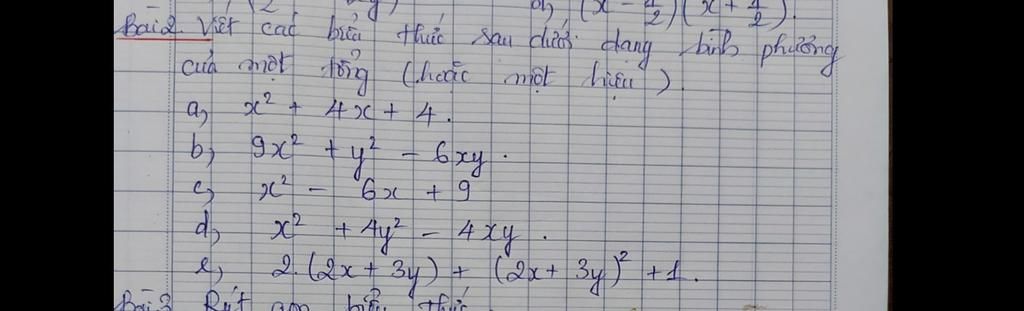 d, (x - 1/2)(x + 1/2).
Bài 2. Viết các biểu thức sau dưới dạng bình phương
của một tổng (hoặc một hiệu).
a, x² + 4x + 4.
b, 9x² + y² - 6xy.
c, x² - 6x + 9
d, x² + 4y² - 4xy.
e, 2.(2x + 3y) + (2x + 3y)² + 1.
Bài 3 Rút gọn biểu thức